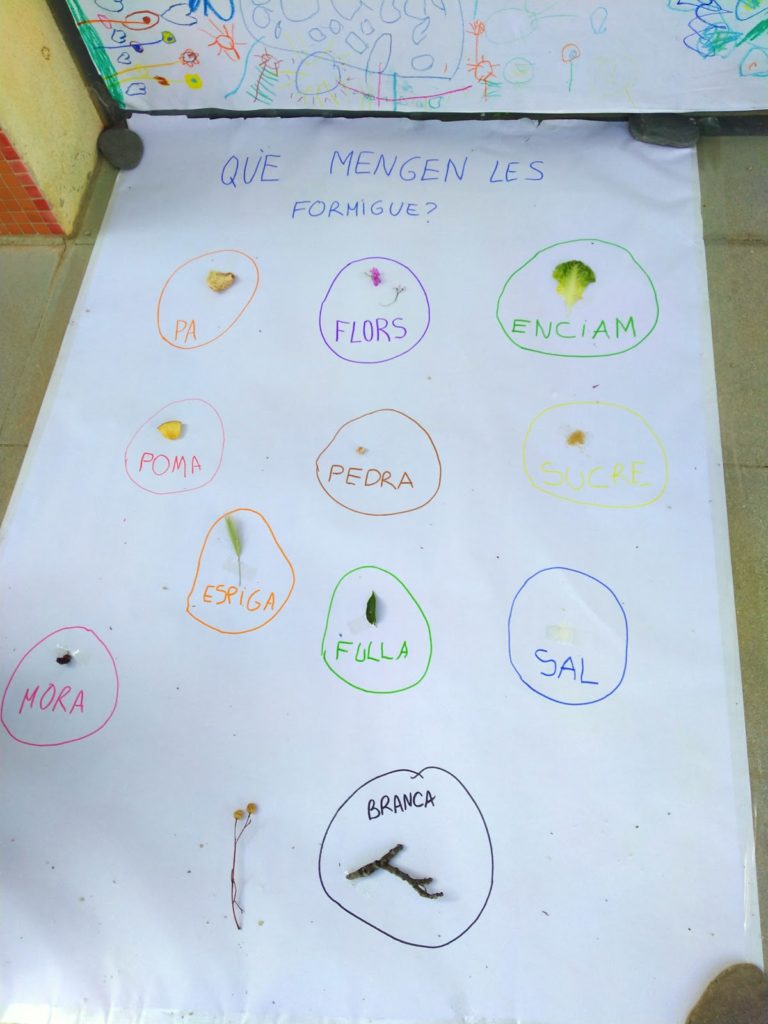 QUÈ MENGEN LES
FORMIGUE?
PA
FLORS
ENCIAM
POMA
PEDRA
SUCRE
ESPIGA
FULLA
SAL
MORA
BRANCA